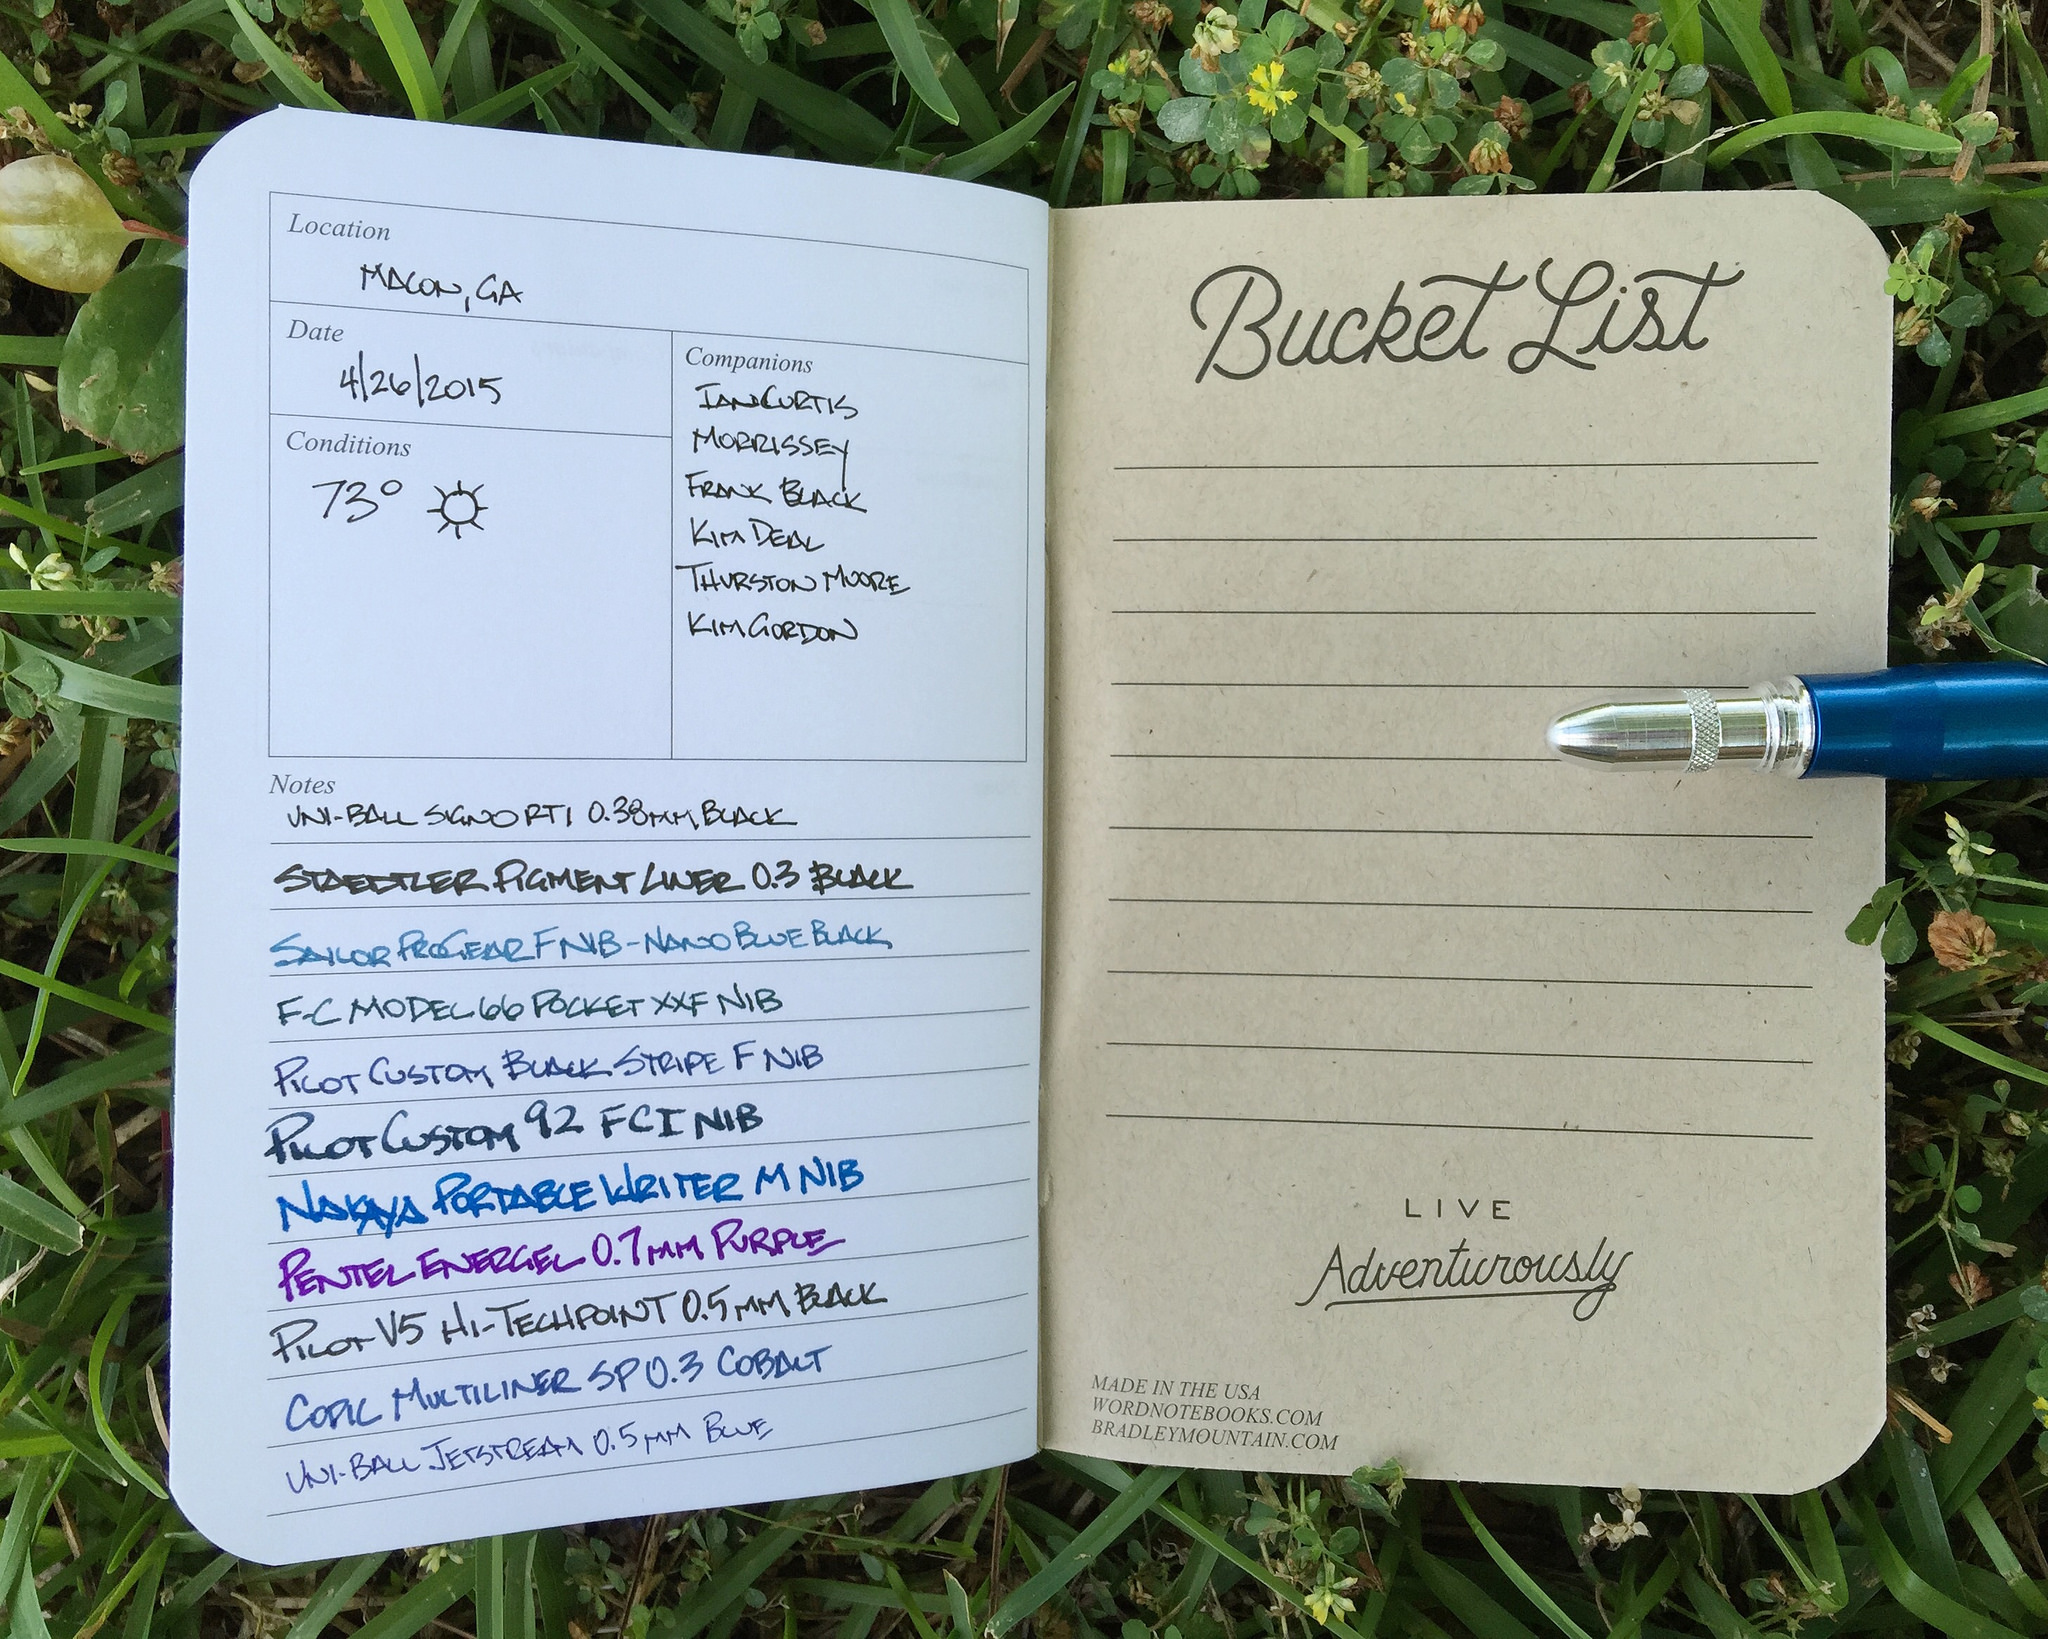 Location
MACON, GA
Date
4/26/2015
Conditions
73°
Companions
IAN CURTIS
MORRISSEY
FRANK BLACK
KIM DEAL
THURSTON MOORE
KIM GORDON
Notes
UNI-BALL SIGNO RT1 0.38MM BLACK
STAEDTLER PIGMENT LINER 0.3 BLACK
SAILOR PROGEAR F NIB - NANO BLUE BLACK
F-C MODEL 66 POCKET XXF NIB
PILOT CUSTOM BLACK STRIPE F NIB
PILOT CUSTOM 92 FCI NIB
NAKAYA PORTABLE WRITER M NIB
PENTEL ENERGEL 0.7MM PURPLE
PILOT V5 HI-TECHPOINT 0.5MM BLACK
COPIC MULTILINER SP 0.3 COBALT
UNI-BALL JETSTREAM 0.5MM BLUE
Bucket List
LIVE
Adventurously
MADE IN THE USA
WORDNOTEBOOKS.COM
BRADLEYMOUNTAIN.COM